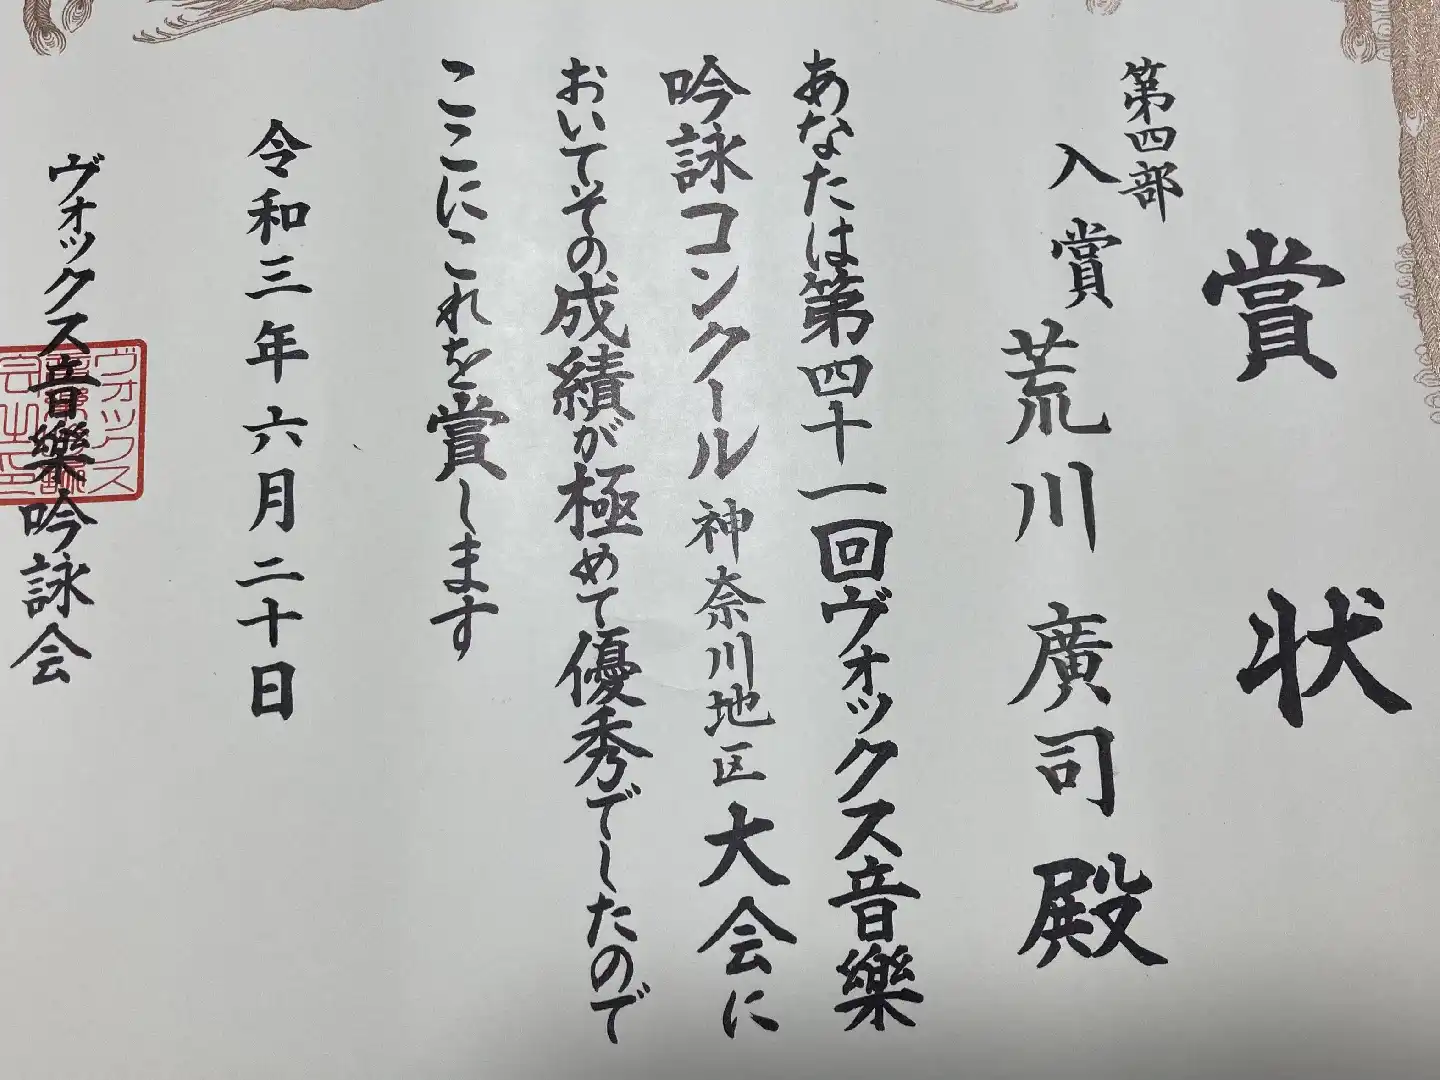 賞状
第四部
入賞
荒川廣司殿
あなたは第四十一回ヴォックス音樂
吟詠コンクール神奈川地区大会に
おいてその成績が極めて優秀でしたので
ここにこれを賞します
令和三年六月二十日
ヴォックス音樂吟詠会